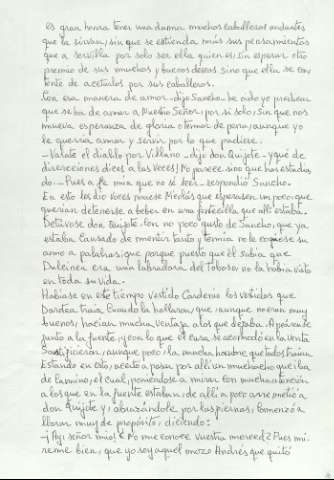 es gran honra tener una dama muchos caballeros andantes
que la sirvan, sin que se estiendan más sus pensamientos
que a servilla por solo ser ella quien es, sin esperar otro
premio de sus muchos y buenos deseos sino que ella se con
tente de acetarlos por sus caballeros.
Con esa manera de amor - dijo Sancho - he oído yo predicar
que se ha de amar a Nuestro Señor, por sí solo, sin que nos
mueva esperanza de gloria o temor de pena, aunque yo
le querría amar y servir por lo que pudiese.
- Válate el diablo por villano - dijo don Quijote - y qué de
discreciones dices a las veces! No parece sino que has estudia
do. - Pues a fe mía que no sé leer - respondió Sancho.
En esto les dio voces maese Nicolás que esperasen un poco; que
querían detenerse a beber en una fontecilla que allí estaba.
Detúvose don Quijote, con no poco gusto de Sancho, que ya
estaba cansado de mentir tanto y temía no le cogiese su
amo a palabras; que porque puesto que él sabía que
Dulcinea era una labradora del Toboso, no la había visto
en toda su vida.
Habíase en este tiempo vestido Cardenio los vestidos que
Dorotea traía cuando la hallaron, que, aunque no eran muy
buenos, hacían mucha ventaja a los que dejaba. Apeáronse
junto a la fuente, y con lo que el cura se acomodó en la venta
satisficieron, aunque poco, la mucha hambre que todos traían.
Estando en esto, acertó a pasar por allí un muchacho que iba
de camino, el cual, poniéndose a mirar con mucha atención
a los que en la fuente estaban, de allí a poco arremetió a
don Quijote y, abrazándole por las piernas, comenzó a
llorar muy de propósito, diciendo:
- ¡Ay, señor mío! ¿No me conoce vuestra merced? Pues mí-
reme bien, que yo soy aquel mozo Andrés que quitó